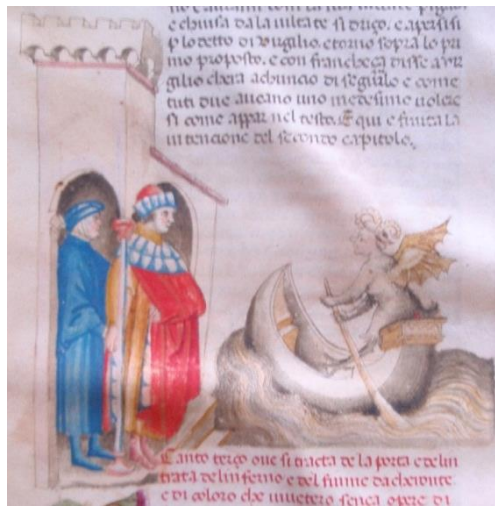 e chiusa da la viltate si driço. e aperssisi
p lo detto di Vugilio. e torno sopra lo pri
mo proposto. e con francheça disse a vir
gilio chera adiuncio di seguilo e come
tuti due aueano uno medesimo uolere
si come appar nel testo. E qui e finita la
intencione del secondo capitolo.
Canto terço oue si tracta de la porta e delin
trata de linferno e del fiume dacheronte
e di coloro che uiuetero sença opere di